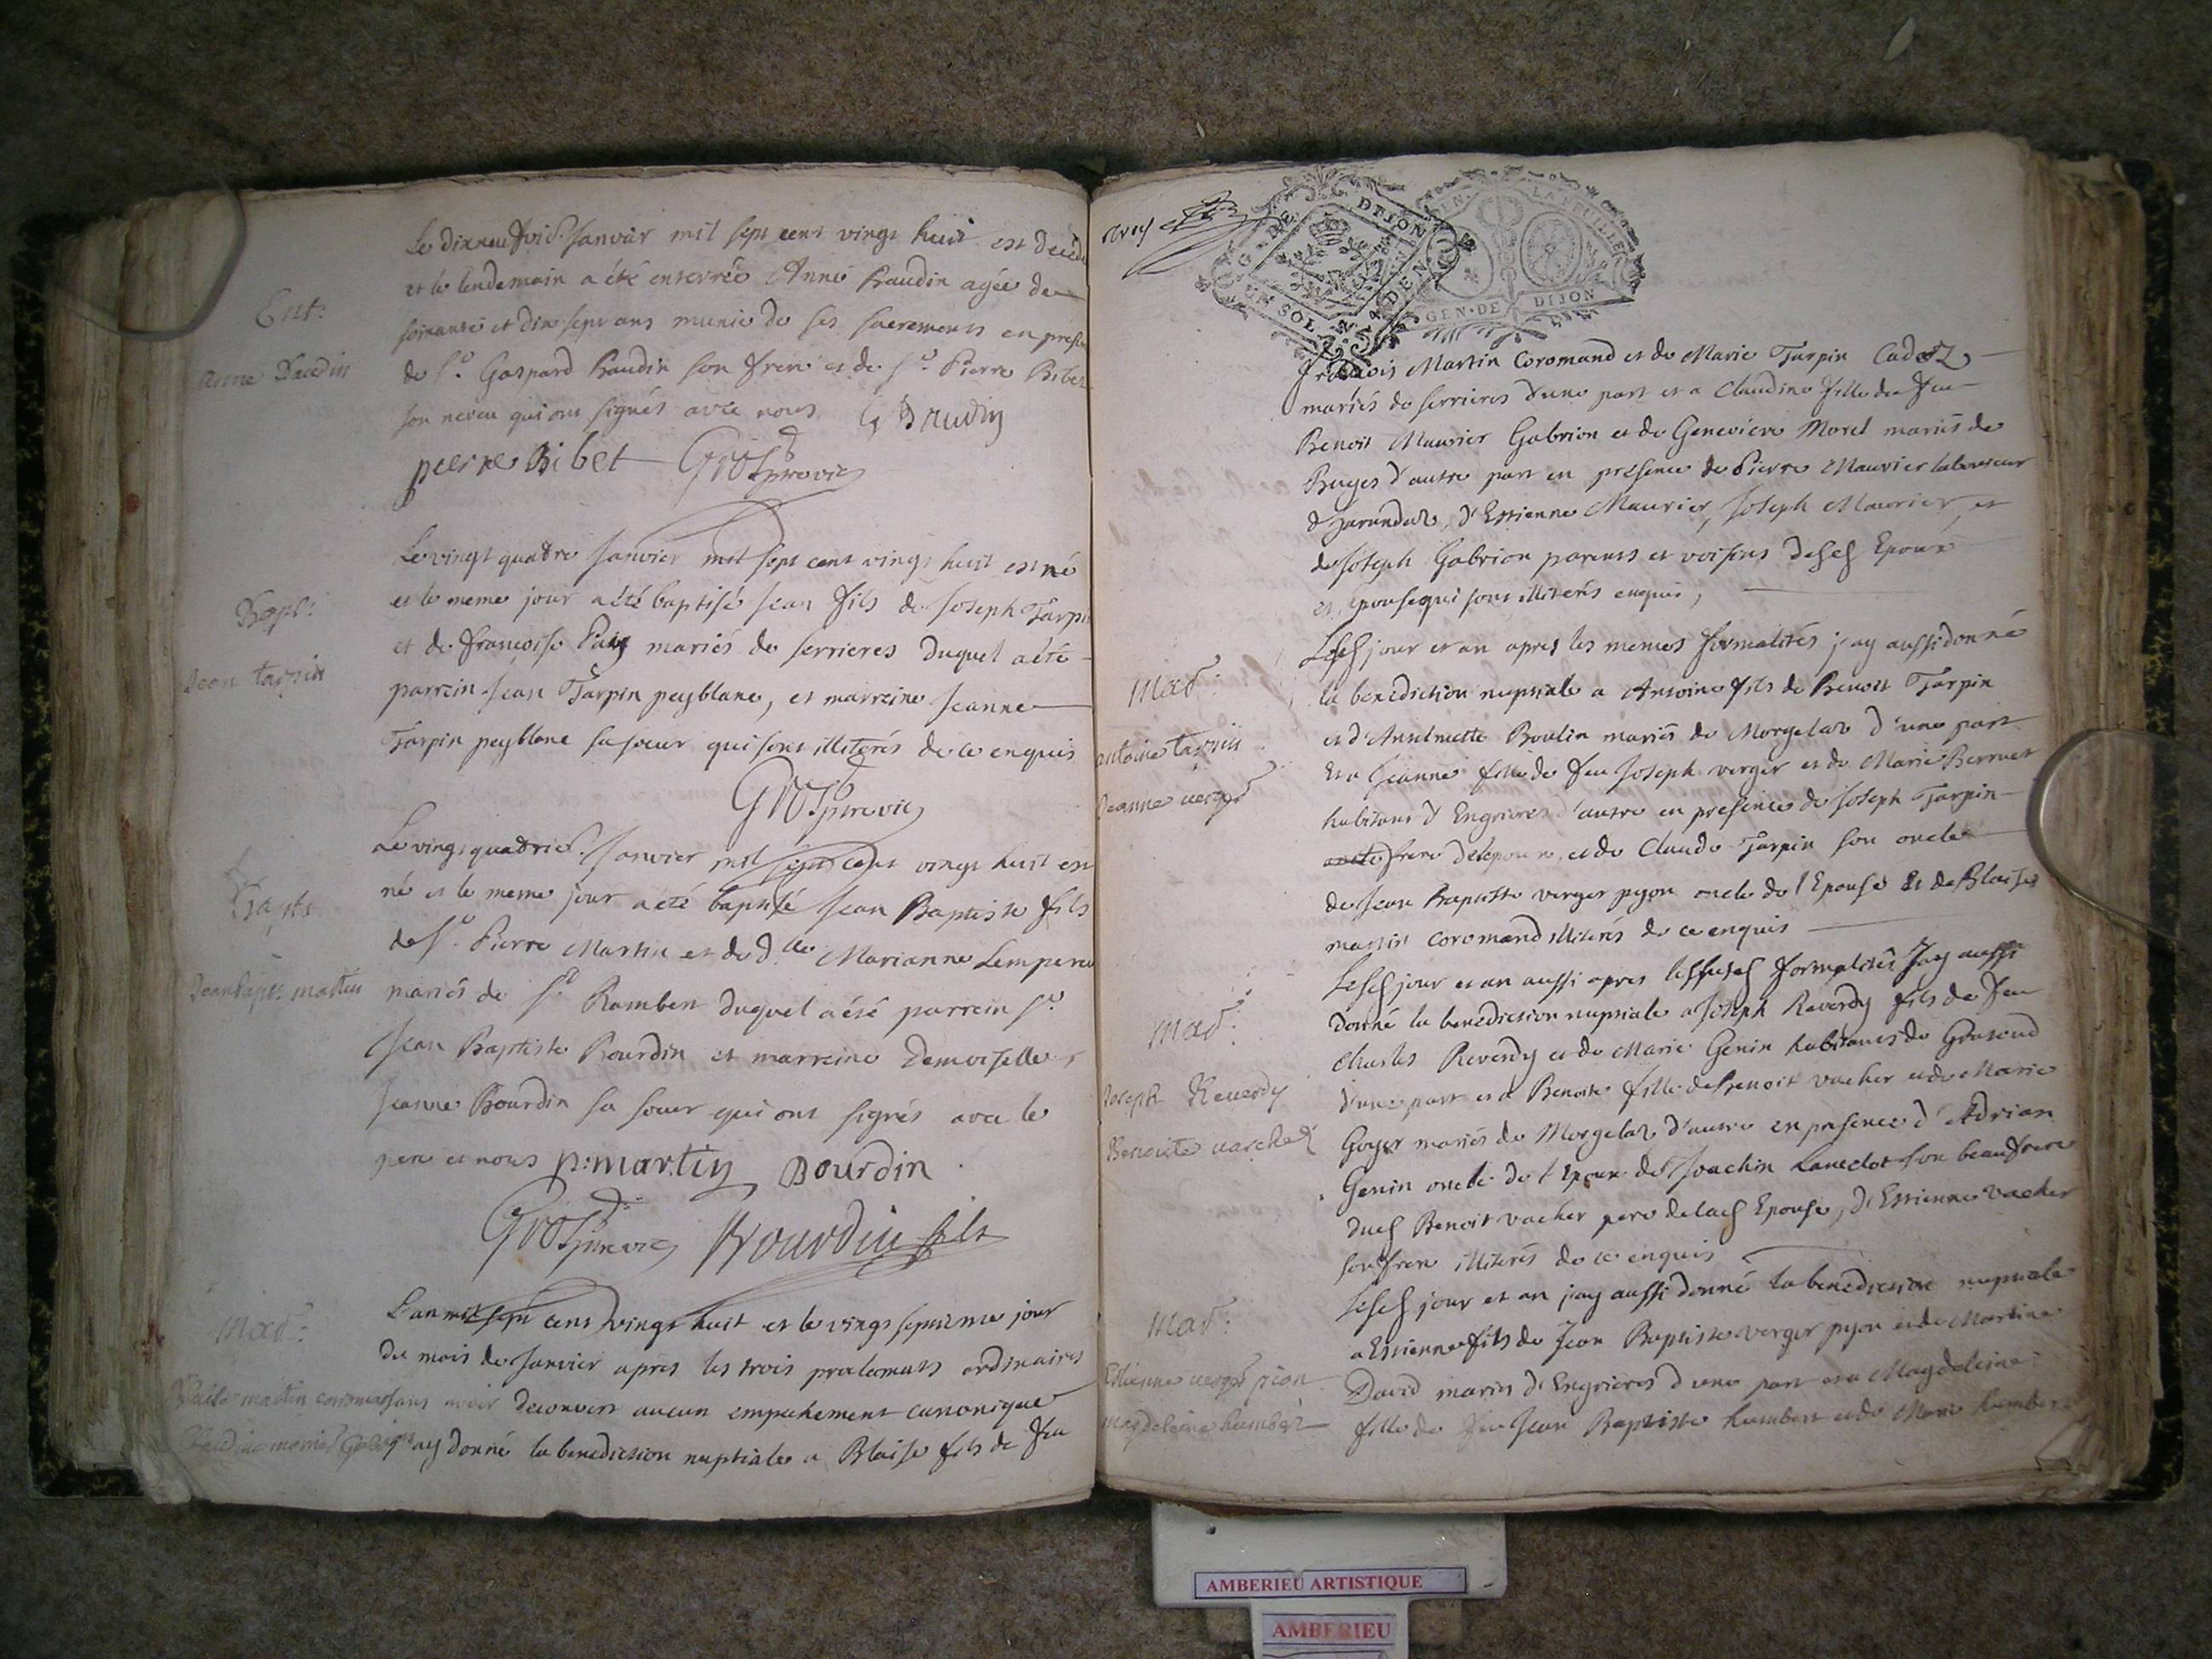 Ent:
Anne Baudin
Le dixneufvie Janvier mil sept cent vingt huit est decédé
et le lendemain a été enterrée Anne Baudin agée de
soixante et dix sept ans munie de ses sacrements en presen
de Sr. Gaspard Baudin son frere et de Sr. Pierre Bibet
son neveu qui ont signés avec nous G Baudin
pierre Bibet
Bapt:
Jean tarpin
Le vingt quatre Janvier mil sept cent vingt huit est né
et le meme jour a été baptisé Jean fils de Joseph Tarpin
et de francoise mariés de serrieres duquel a été
parrein Jean Tarpin peyblanc, et marreine Jeanne
Tarpin peyblanc sa soeur qui sont illiterés de ce enquis
Bapt:
Jean bapte martin
Le vingt quatrie. Janvier mil sept cent vingt huit est
né et le meme jour a été baptisé Jean Baptiste fils
de Sr. Pierre Martin et de dlle Marianne Lempereu
mariés de St Rambert duquel a été parrein Sr.
Jean Baptiste Bourdin et marreine Demoiselle
Jeanne Bourdin sa soeur qui ont signés avec le
pere et nous p: martin Bourdin
Bourdin fils
mar:
Blaise martin coromand
L'an mil sept cent vingt huit et le vingt septieme jour
du mois de Janvier apres les trois proclamats ordinaires
sans avoir decouvert aucun empechement canonique
j'ay donné la benediction nuptiale a Blaise fils de feu
GEN. DE DIJON
UN SOL
LA FEUILLE
GEN. DE DIJON
francois Martin Coromand et de Marie Tarpin Cadet
mariés de serrieres d'une part et a Claudine fille de feu
Benoit Maurier Gabrion et de Genevieve Morel mariés de
Buges d'autre part en présence de Pierre Maurier laboureur
d'Estienne Maurier, Joseph Maurier, et
de Joseph Gabrion parents et voisins desd Epoux
et epouse qui sont illiterés enquis,
mar:
antoine tarpin
Jeanne verger
Lesd jour et an apres les memes formalités j'ay aussi donné
la benediction nuptiale a Antoine fils de Benoit Tarpin
et d'Anselmette Boulin mariés de Morgelas d'une part
et a Jeanne fille de feu Joseph verger et de Marie Berruet
habitans d'Engrieres d'autre en presence de Joseph Tarpin
oncle frere de lepoux, et de Claude Tarpin son oncle
de Jean Baptiste verger pyon oncle de l'Epouse et de Blaise
martin coromand illiterés de ce enquis
mar:
Joseph Reverdy
Benoite vacher
Lesd jour et an aussi apres lessusd formalités Jay aussi
donné la benediction nuptiale a Joseph Reverdy fils de feu
Charles Reverdy et de Marie Genin habitants de
d'une part et a Benoite fille de Benoit vacher et de Marie
Goyer mariés de Morgelas d'autre en presence d'Adrian
Genin oncle de l'epoux de Joachin Lancelot son beaufrere
dud Benoit vacher pere de lad Epouse, d'Estienne vacher
son frere illiterés de ce enquis
mar:
Etienne verger pion
magdeleine humbert
Lesd jour et an j'ay aussi donné la benediction nuptiale
a Estienne fils de Jean Baptiste verger pyon et de Martine
David mariés d'Engrieres d'une part et a Magdeleine
fille de feu Jean Baptiste humbert et de Marie humbert
AMBERIEU ARTISTIQUE
AMBERIEU